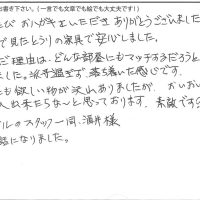 お書き下さい。(一言でも文章でも絵でも大丈夫です!)
び おハガキをいただき ありがとうございました
で見たとうりの家具で安心しました。
だ理由は、どんな部屋にもマッチするだろうと
ました。派手過ぎず、落ち着いた感じです。
も欲しい物が沢山ありましたが、
入れ来たらな〜と思っております。素敵です
ルのスタッフ一同、酒井様
話になりました。